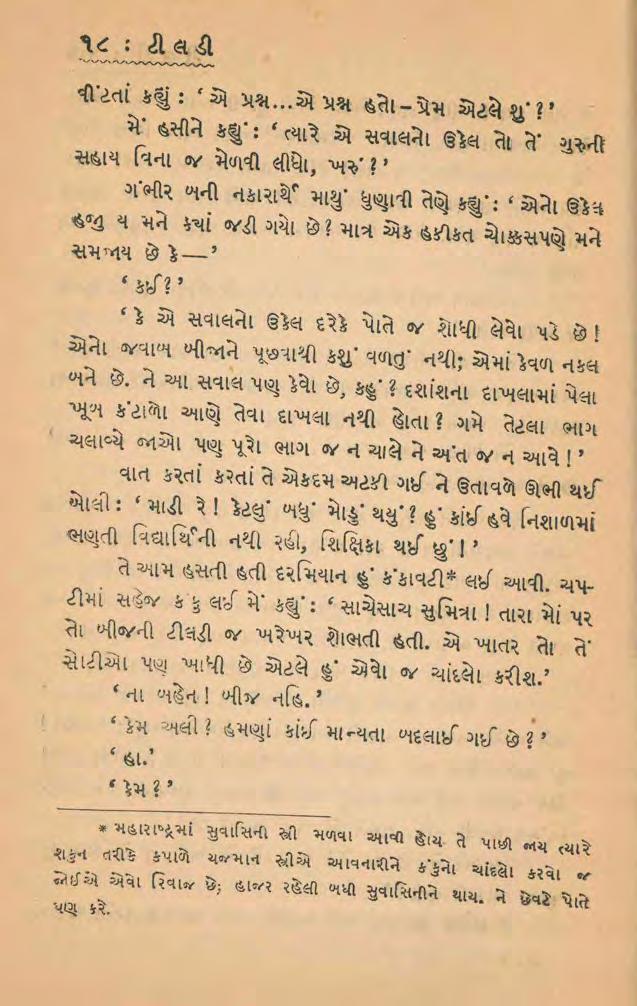 ૧૮ : ટીલડી
વીંટતાં કહ્યું : ‘ એ પ્રશ્ન...એ પ્રશ્ન હતો – પ્રેમ એટલે શું ? ’
મેં હસીને કહ્યું : ‘ ત્યારે એ સવાલનો ઉકેલ તો તેં ગુરુની
સહાય વિના જ મેળવી લીધો, ખરું ? ’
ગંભીર બની નકારાર્થે માથું ધુણાવી તેણે કહ્યું : ‘ એનો ઉકેલ
હજુ ય મને ક્યાં જડી ગયો છે ? માત્ર એક હકીકત ચોક્કસપણે મને
સમજાય છે કે — ’
‘ કઈ ? ’
‘ કે એ સવાલનો ઉકેલ દરેકે પોતે જ શોધી લેવો પડે છે !
એનો જવાબ બીજાને પૂછવાથી કશું વળતું નથી; એમાં કેવળ નકલ
બને છે. ને આ સવાલ પણ કેવો છે, કહું ? દશાંશના દાખલામાં પેલા
ખૂબ કંટાળો આણે તેવા દાખલા નથી હોતા ? ગમે તેટલા ભાગ
ચલાવ્યે જાઓ પણ પૂરો ભાગ જ ન ચાલે ને અંત જ ન આવે ! ’
વાત કરતાં કરતાં તે એકદમ અટકી ગઈ ને ઉતાવળે ઊભી થઈ
બોલી : ‘ માડી રે ! કેટલું બધું મોડું થયું ? હું કાંઈ હવે નિશાળમાં
ભણતી વિદ્યાર્થિની નથી રહી, શિક્ષિકા થઈ છું ! ’
તે આમ હસતી હતી દરમિયાન હું કંકાવટી* લઈ આવી. ચપ-
ટીમાં સહેજ કંકુ લઈ મેં કહ્યું : ‘ સાચેસાચ સુમિત્રા ! તારા મોં પર
તો બીજની ટીલડી જ ખરેખર શોભતી હતી. એ ખાતર તો તેં
સોટીઓ પણ ખાધી છે એટલે હું એવો જ ચાંદલો કરીશ.’
‘ ના બહેન ! બીજ નહિ. ’
‘ કેમ અલી ? હમણાં કાંઈ માન્યતા બદલાઈ ગઈ છે ? ’
‘ હા.’
‘ કેમ ? ’
* મહારાષ્ટ્રમાં સુવાસિની સ્ત્રી મળવા આવી હોય તે પાછી જાય ત્યારે
શકુન તરીકે કપાળે યજમાન સ્ત્રીએ આવનારીને કંકુનો ચાંદલો કરવો જ
જોઈએ એવો રિવાજ છે; હાજર રહેલી બધી સુવાસિનીને થાય. ને છેવટે પોતે
પણ કરે.